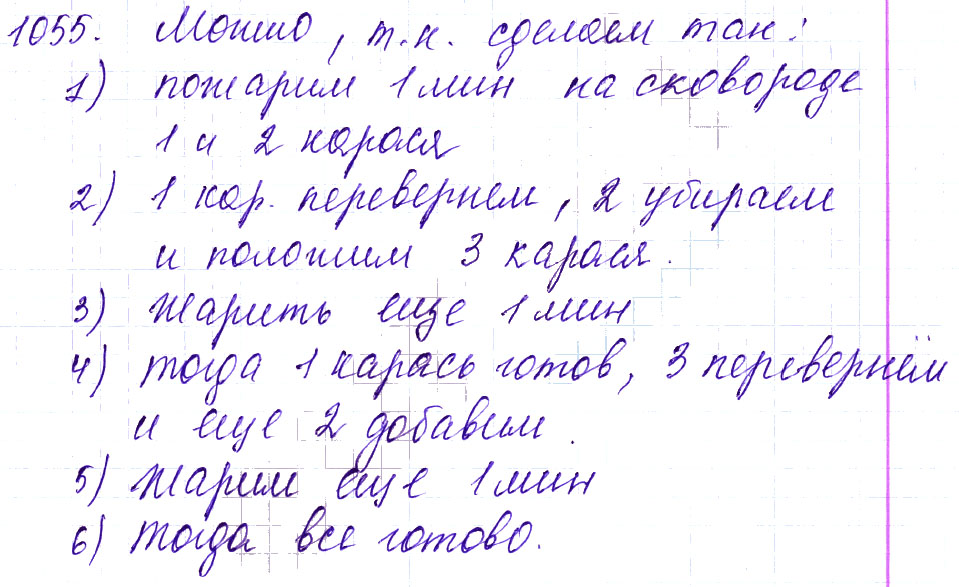 1055. Можно, т.к. сделаем так:
1) пожарим 1 мин на сковороде
1 и 2 карася
2) 1 кар. перевернем, 2 убираем
и положим 3 карася.
3) Жарить еще 1 мин
4) Тогда 1 карась готов, 3 перевернём
и еще 2 добавим.
5) Жарим еще 1 мин
6) Тогда все готово.